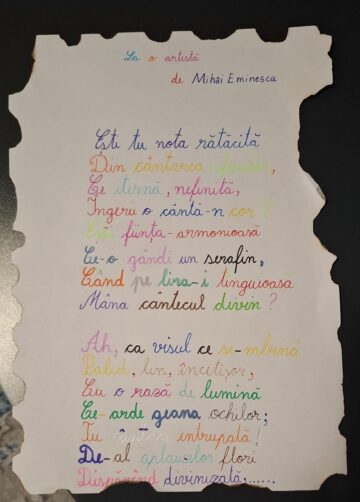 La o artistă
de Mihai Eminescu
Ești tu nota rătăcită
Din cântarea sferelor,
Ce eternă, nefinită,
Îngerii o cântă-n cor?
Ești ființa-armonioasă
Ce-o gândi un serafin,
Când pe lira-i tânguioasă
Mâna cântecul divin?
Ah, ca visul ce se-mbină
Palid, lin, încetișor,
Cu o rază de lumină
Ce-arde geana ochilor;
Tu cântare întrupată!
De-al aplauzelor flori
Dispărând divinizată,......